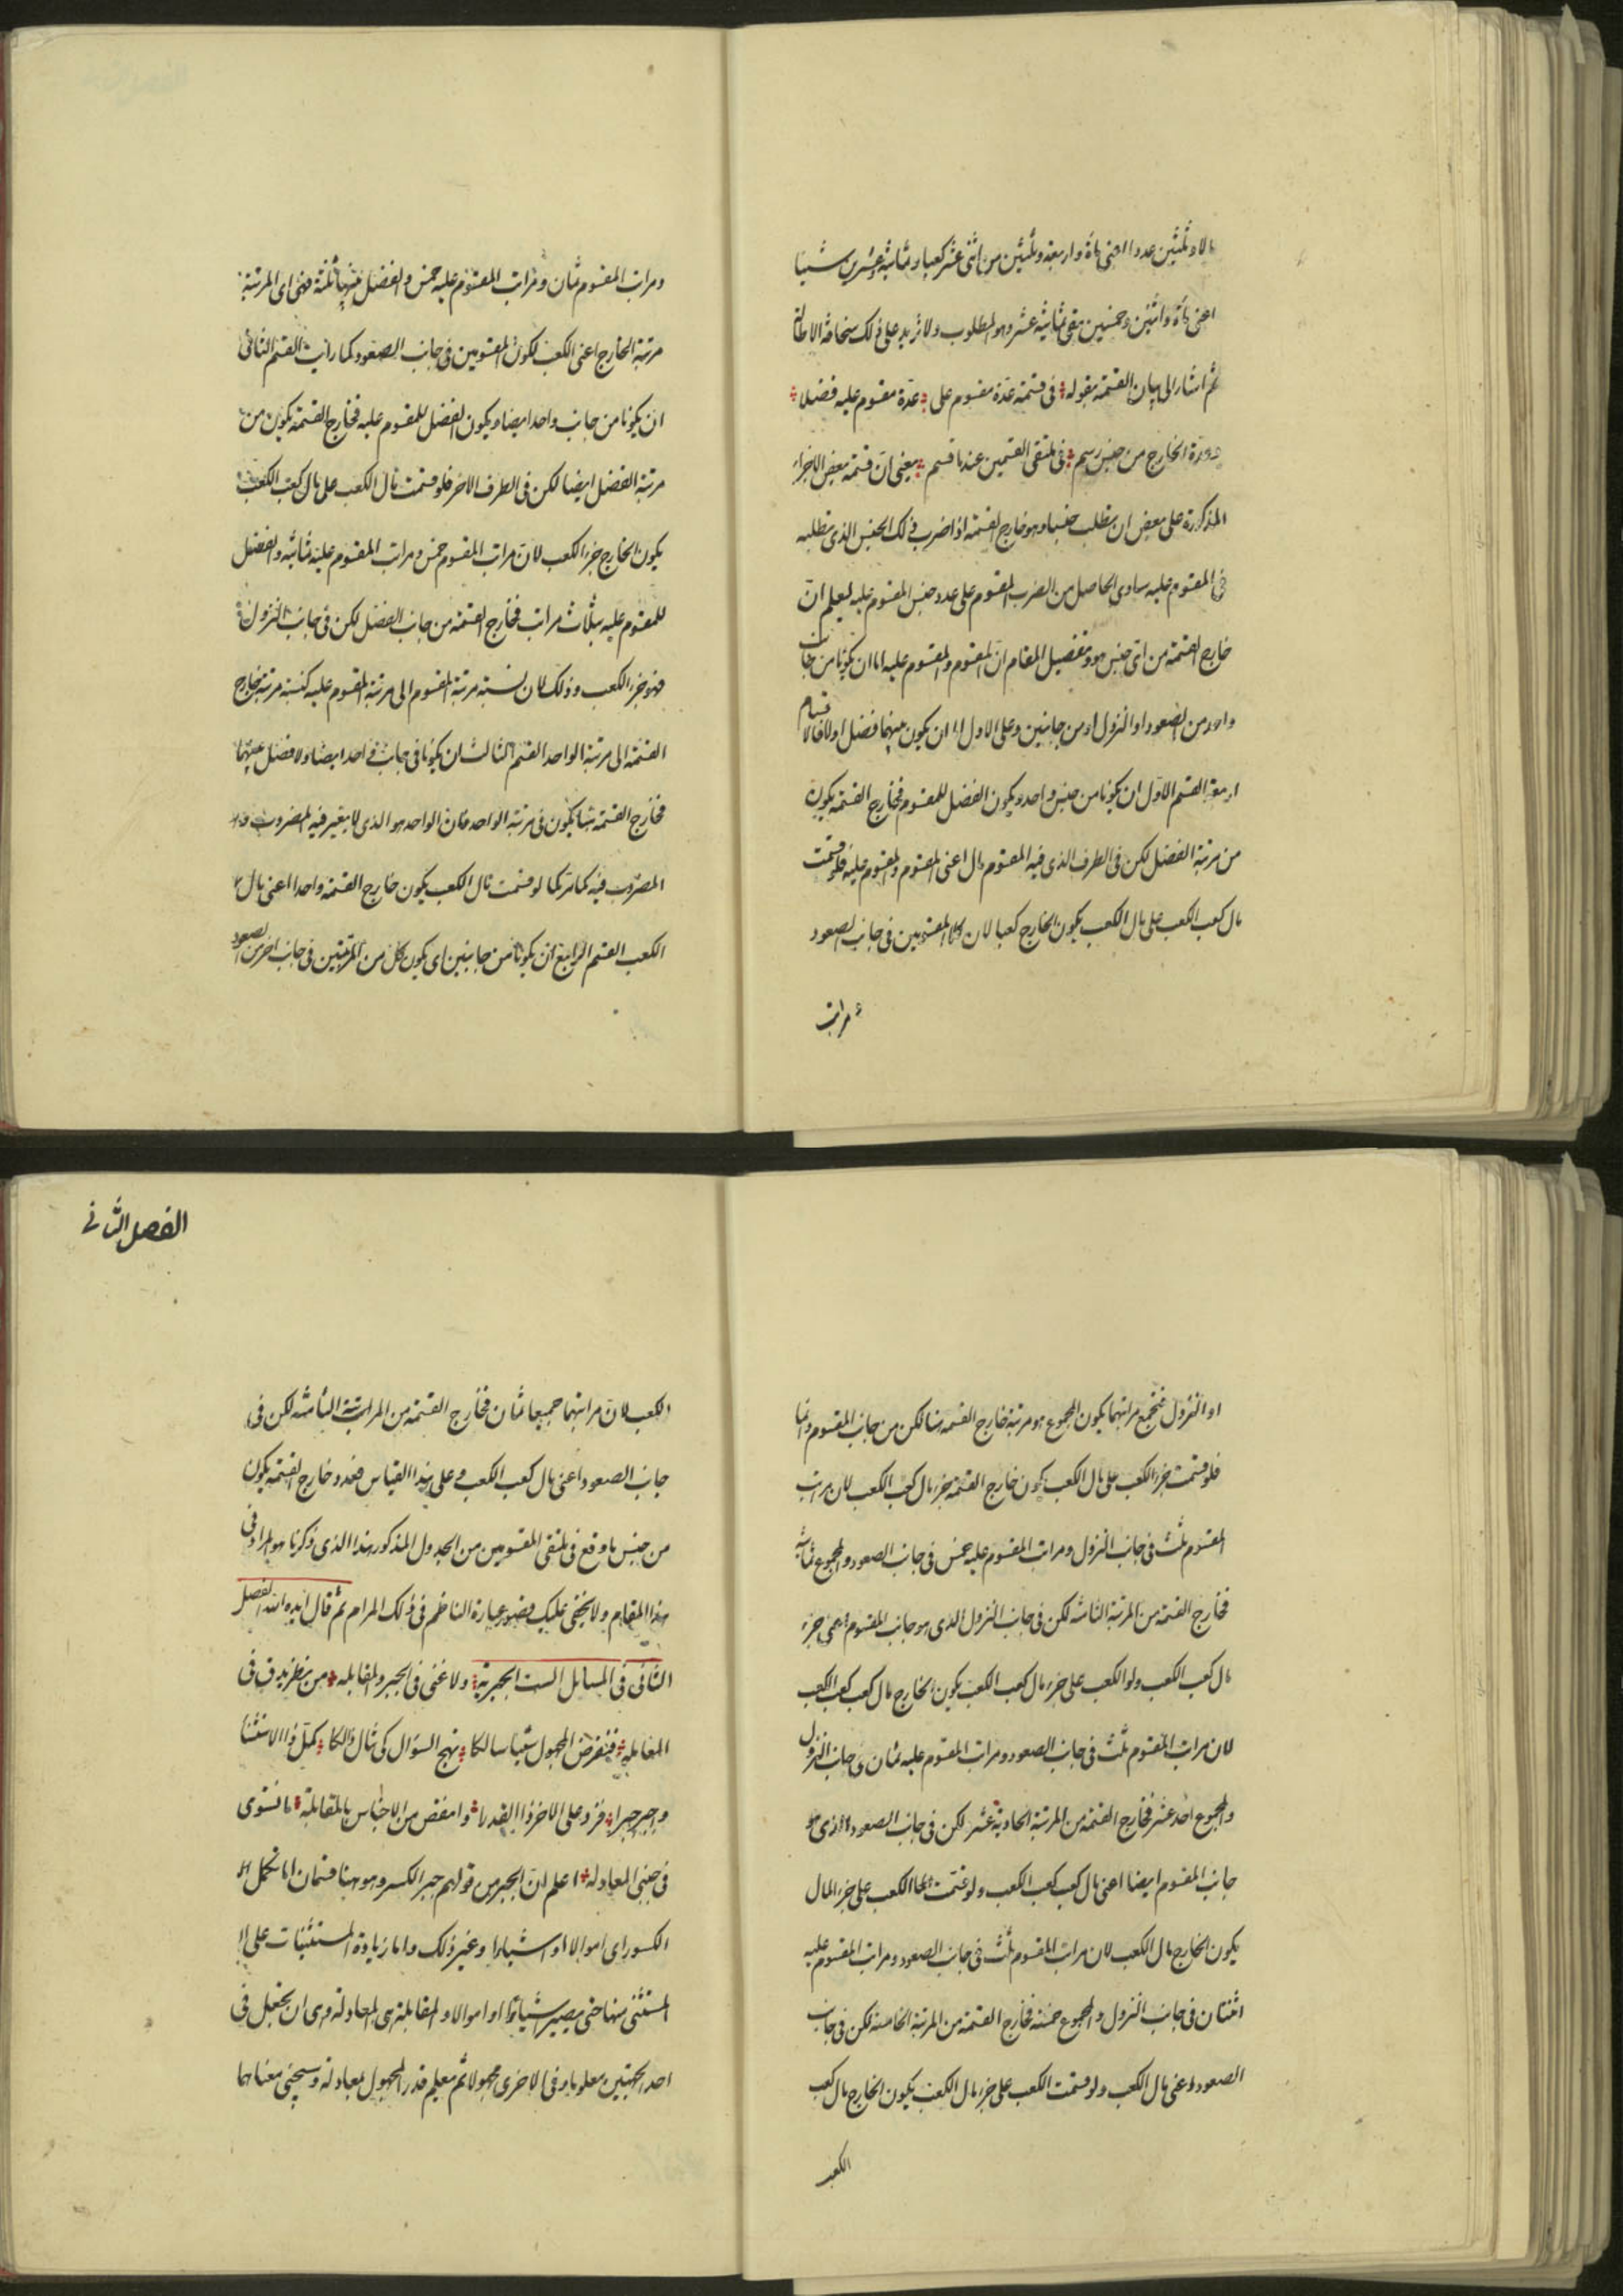 مالا وثلثين عددا اعنى مأة واربعة وثلثين من اثنى عشر كعبا وثمانية وعشرين شيئا
اعنى مأة واثنين وخمسين بقى ثمانية عشر وهو المطلوب ولا نزيد على ذلك مخافة الاطالة
ثم اشار الى بيان القسمة بقوله فى قسمة عدة مقسوم على عدة مقسوم عليه فضلا
الخارج من جنس رسم فى ملتقى القسمين عندنا قسم يعنى ان قسمة بعض الاجزاء
المذكورة على بعض ان يطلب جنسا وهو خارج القسمة اذا ضرب ذلك الجنس الذى يطلبه
فى المقسوم عليه ساوى الحاصل من الضرب المقسوم على عدد جنس المقسوم عليه ليعلم ان
خارج القسمة من اى جنس هو وتفصيل المقام ان المقسوم والمقسوم عليه اما ان يكونا من جانب
واحد من الصعود او النزول او من جانبين وعلى الاول اما ان يكون بينهما فضل او لا فالاقسام
اربعة القسم الاول ان يكونا من جنس واحد ويكون الفضل للمقسوم فخارج القسمة يكون
من مرتبة الفضل لكن فى الطرف الذى فيه المقسوم مال اعنى المقسوم والمقسوم عليه فلو قسمت
مال كعب الكعب على مال الكعب يكون الخارج كعبا لان كلا المقسومين فى جانب الصعود
مراتب
ومراتب المقسوم ثمان ومراتب المقسوم عليه خمس والفضل بينهما ثلثة فهى اى المرتبة
مرتبة الخارج اعنى الكعب لكون المقسومين فى جانب الصعود كما رأيت القسم الثانى
ان يكونا من جانب واحد ايضا ويكون الفضل للمقسوم عليه فخارج القسمة يكون من
مرتبة الفضل ايضا لكن فى الطرف الاخر فلو قسمت مال الكعب على مال كعب الكعب
يكون الخارج جزء الكعب لان مراتب المقسوم خمس ومراتب المقسوم عليه ثمانية والفضل
للمقسوم عليه بثلاث مراتب فخارج القسمة من جانب الفضل لكن فى جانب النزول
فهو جزء الكعب وذلك لان نسبة مرتبة المقسوم الى مرتبة المقسوم عليه كنسبة مرتبة خارج
القسمة الى مرتبة الواحد القسم الثالث ان يكونا فى جانب واحد ايضا ولا فضل بينهما
فخارج القسمة هنا يكون فى مرتبة الواحد فان الواحد هو الذى لا يغير فيه المضروب
المضروب فيه كما مر كما لو قسمت مال الكعب يكون خارج القسمة واحدا اعنى مال
الكعب القسم الرابع ان يكونا من جانبين اى يكون كل من المرتبتين فى جانب اخر من الصعود
او النزول فتجمع مراتبهما يكون المجموع هو مرتبة خارج القسمة هنا لكن من جانب المقسوم دائما
فلو قسمت جزء الكعب على مال الكعب يكون خارج القسمة جزء مال كعب الكعب لان مراتب
المقسوم ثلث فى جانب النزول ومراتب المقسوم عليه خمس فى جانب الصعود والمجموع ثمانية
فخارج القسمة من المرتبة الثامنة لكن فى جانب النزول الذى هو جانب المقسوم اعنى جزء
مال كعب الكعب ولو الكعب على جزء مال كعب الكعب يكون الخارج مال كعب كعب الكعب
لان مراتب المقسوم ثلث فى جانب الصعود ومراتب المقسوم عليه ثمان فى جانب النزول
والمجموع احد عشر فخارج القسمة من المرتبة الحادية عشر لكن فى جانب الصعود الذى هو
جانب المقسوم ايضا اعنى مال كعب كعب الكعب ولو قسمت الكعب على جزء المال
يكون الخارج مال الكعب لان مراتب المقسوم ثلث فى جانب الصعود ومراتب المقسوم عليه
اثنتان فى جانب النزول والمجموع خمسة فخارج القسمة من المرتبة الخامسة لكن فى جانب
الصعود اعنى مال الكعب ولو قسمت الكعب على جزء مال الكعب يكون الخارج مال كعب
الكعب
الفصل الثانى
الكعب لان مراتبهما جميعا ثمان فخارج القسمة من المرتبة الثامنة لكن فى
جانب الصعود اعنى مال كعب الكعب وعلى هذا القياس فعدد خارج القسمة يكون
من جنس ما وقع فى ملتقى المقسومين من الجدول المذكور هذا الذى ذكرنا هو المراد فى
هذا المقام ولا يخفى عليك قصور عبارة الناظم فى ذلك المرام ثم قال ايده الله الفصل
الثانى فى المسائل الست الجبرية ولا غنى فى الجبر والمقابله من نظر يدق فى
المقابله فنفرض المجهول شيئا سالكا نهج السؤال كى تنال ذالكا كمل ذا الاستثنا
وجبر جبرا فزد على الاخر ذا القدرا وانقض من الاجناس بالمقابلة ما تستوى
فى جنبى المعادله اعلم ان الجبر من قولهم جبر الكسر وهو ههنا قسمان اما تكمل
الكسور اى اموالا او اشياء وغير ذلك واما زيادة المستثنيات على
المستثنى منها حتى يصير اشياء او اموالا والمقابلة هى المعادلة وهى ان يجعل فى
احد الجهتين معلوما وفى الاخرى مجهولا ثم يعلم قدر المجهول بمعادلة وسيجئ معناهما